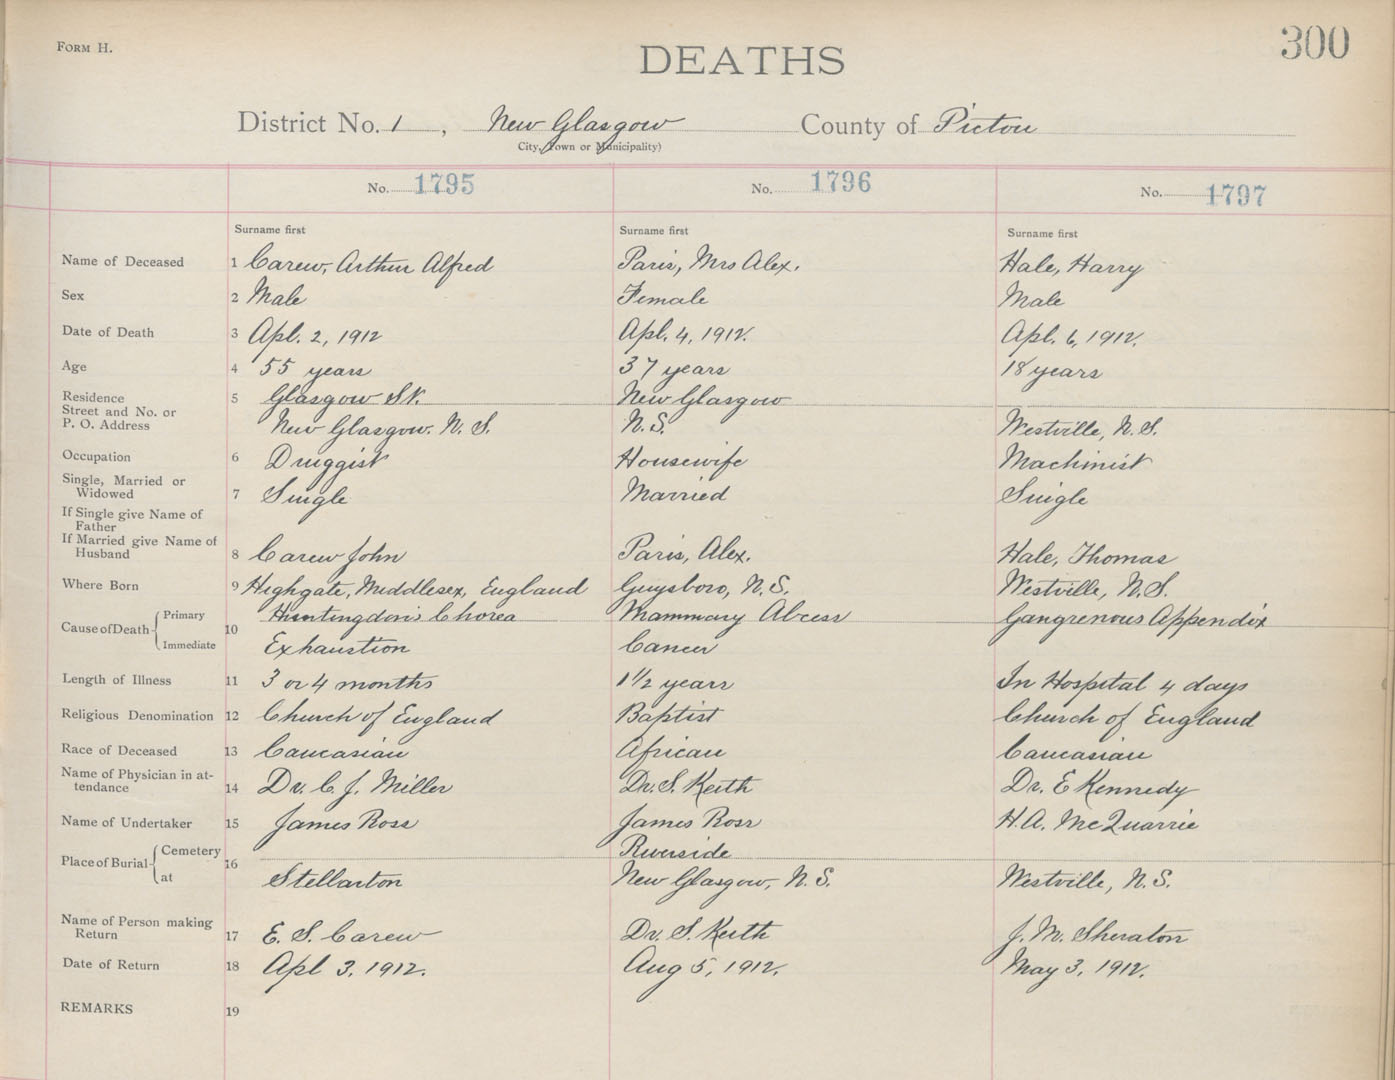 FORM H.
DEATHS
300
District No. 1, New Glasgow County of Pictou
City, Town or Municipality)
No. 1795 No. 1796 No. 1797
Surname first Surname first Surname first
Name of Deceased 1 Carew, Arthur Alfred Paris, Mrs Alex. Hale, Harry
Sex 2 Male Female Male
Date of Death 3 Apl. 2, 1912 Apl. 4, 1912. Apl. 6, 1912.
Age 4 55 years 37 years 18 years
Residence 5 Glasgow St. New Glasgow
Street and No. or
P. O. Address New Glasgow. N. S. N.S. Westville, N.S.
Occupation 6 Druggist Housewife Machinist
Single, Married or
Widowed 7 Single Married Single
If Single give Name of
Father
If Married give Name of
Husband 8 Carew John Paris, Alex. Hale, Thomas
Where Born 9 Highgate, Middlesex, England Guysboro, N.S. Westville, N.S.
Cause of Death Primary 10 Huntingdon's Chorea Mammary Abcess Gangrenous Appendix
Immediate Exhaustion Cancer
Length of Illness 11 3 or 4 months 1 1/2 years In Hospital 4 days
Religious Denomination 12 Church of England Baptist Church of England
Race of Deceased 13 Caucasian African Caucasian
Name of Physician in at-
tendance 14 Dr. C. J. Miller Dr. S. Keith Dr. E Kennedy
Name of Undertaker 15 James Ross James Ross H.A. McQuarrie
Place of Burial Cemetery 16 Riverside
at Stellarton New Glasgow, N.S. Westville, N.S.
Name of Person making
Return 17 E. S. Carew Dr. S. Keith J. M. Sheraton
Date of Return 18 Apl 3, 1912. Aug 5, 1912. May 3, 1912.
REMARKS 19